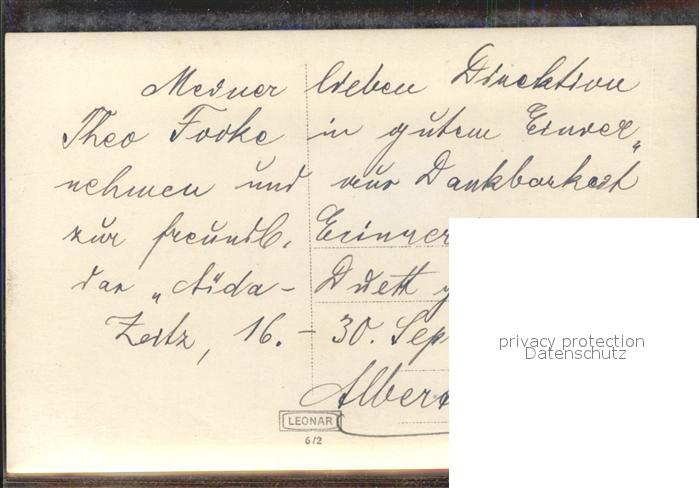 Meiner lieben Direktion
Theo Fooke in gutem Einver„
nehmen und aus Dankbarkeit
zur freundl. Erinner
das „Aida- Duett
Zeitz, 16. - 30. Sep
Alber
LEONAR
6/2
privacy protection
Datenschutz